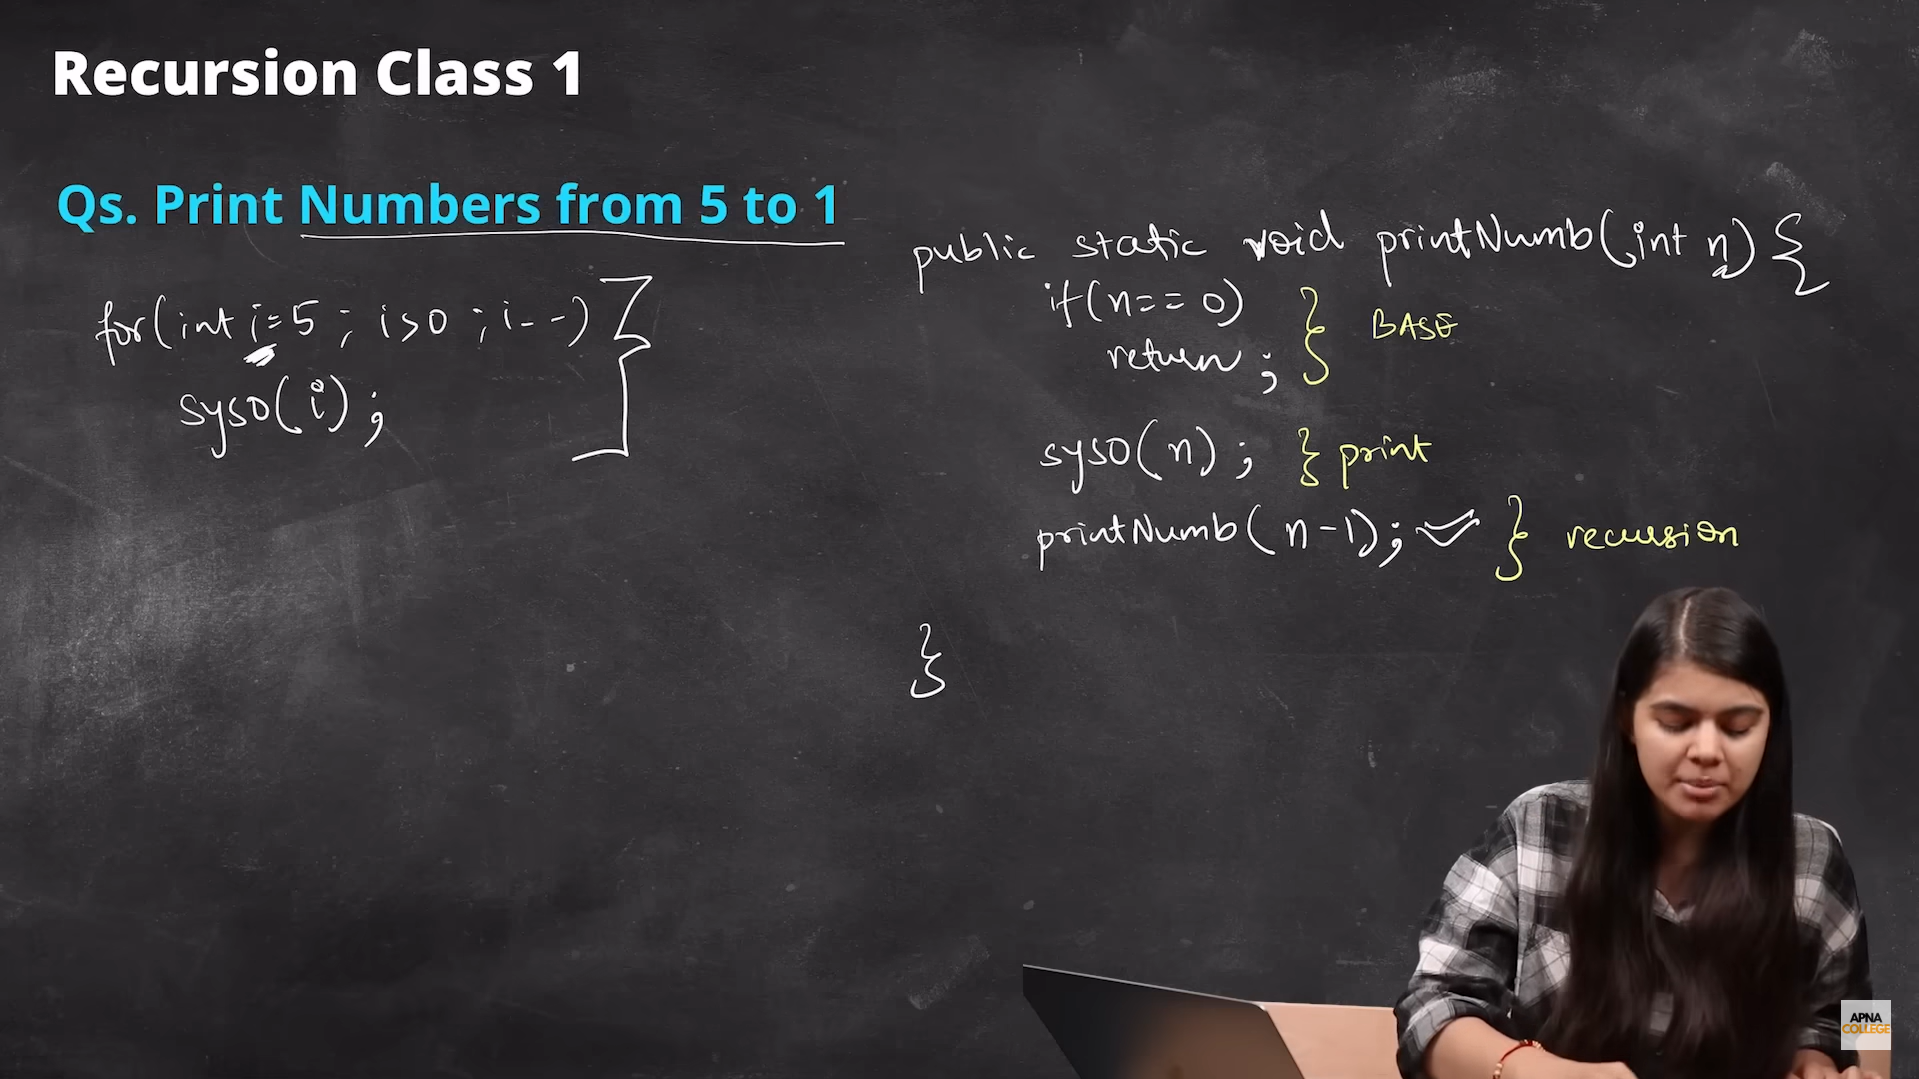 Recursion Class 1
Qs. Print Numbers from 5 to 1
for(int i=5 ; i>0 ; i--)
syso(i);
public static void printNumb(int n) {
if(n==0)
return;
} BASE
syso(n); } print
printNumb(n-1); } recursion
}
APNA
COLLEGE